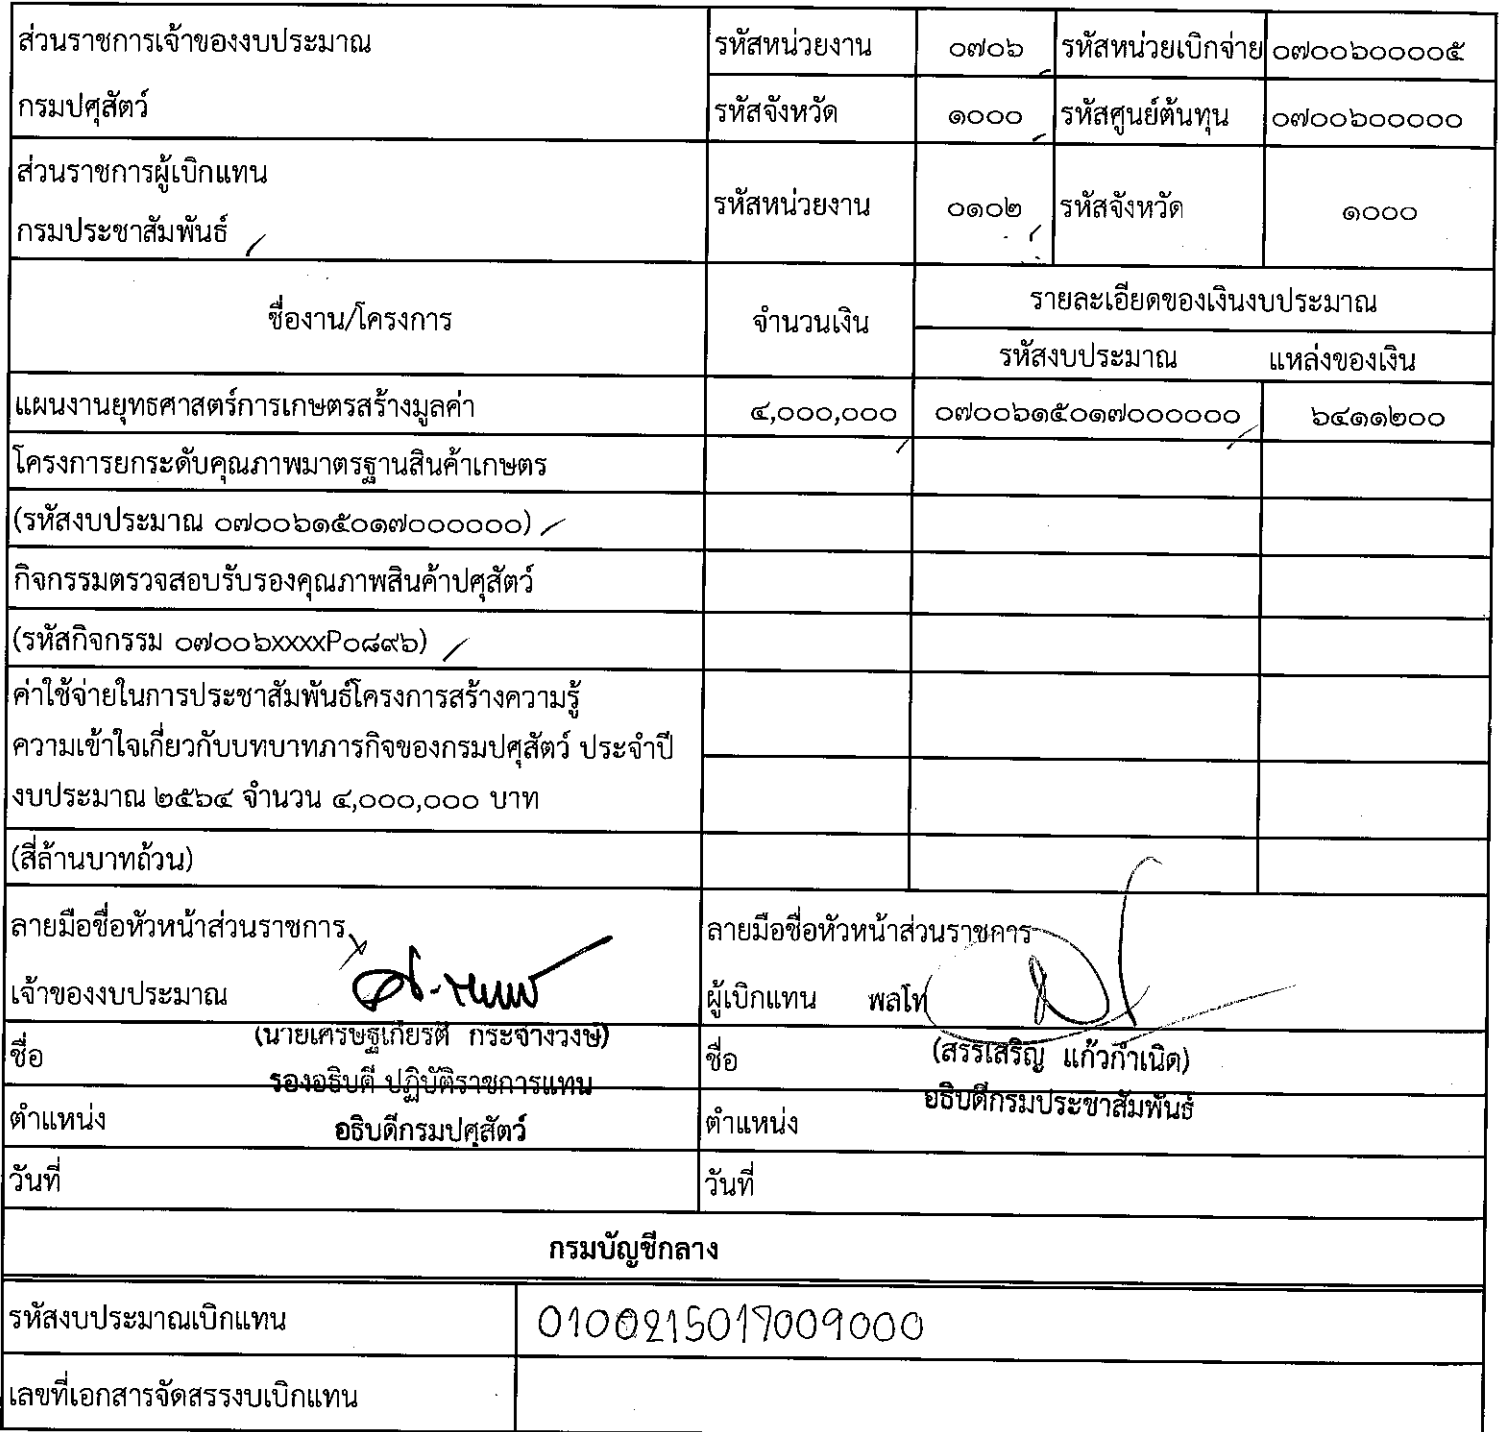 ส่วนราชการเจ้าของงบประมาณ
กรมปศุสัตว์
รหัสหน่วยงาน ๐๗๐๖ รหัสหน่วยเบิกจ่าย ๐๗๐๐๖๐๐๐๐๕
รหัสจังหวัด ๑๐๐๐ รหัสศูนย์ต้นทุน ๐๗๐๐๖๐๐๐๐๐
ส่วนราชการผู้เบิกแทน
กรมประชาสัมพันธ์
รหัสหน่วยงาน ๐๑๐๒ รหัสจังหวัด ๑๐๐๐
ชื่องาน/โครงการ จำนวนเงิน รายละเอียดของเงินงบประมาณ
รหัสงบประมาณ แหล่งของเงิน
แผนงานยุทธศาสตร์การเกษตรสร้างมูลค่า ๔,๐๐๐,๐๐๐ ๐๗๐๐๖๑๕๐๑๗๐๐๐๐๐๐ ๖๔๑๑๒๐๐
โครงการยกระดับคุณภาพมาตรฐานสินค้าเกษตร
(รหัสงบประมาณ ๐๗๐๐๖๑๕๐๑๗๐๐๐๐๐๐)
กิจกรรมตรวจสอบรับรองคุณภาพสินค้าปศุสัตว์
(รหัสกิจกรรม ๐๗๐๐๖xxxxP๐๘๙๖)
ค่าใช้จ่ายในการประชาสัมพันธ์โครงการสร้างความรู้
ความเข้าใจเกี่ยวกับบทบาทภารกิจของกรมปศุสัตว์ ประจำปี
งบประมาณ ๒๕๖๔ จำนวน ๔,๐๐๐,๐๐๐ บาท
(สี่ล้านบาทถ้วน)
ลายมือชื่อหัวหน้าส่วนราชการ
เจ้าของงบประมาณ
ชื่อ (นายเศรษฐเกียรติ กระจ่างวงษ์)
รองอธิบดี ปฏิบัติราชการแทน
ตำแหน่ง อธิบดีกรมปศุสัตว์
วันที่
ลายมือชื่อหัวหน้าส่วนราชการ
ผู้เบิกแทน พลโท
ชื่อ (สรรเสริญ แก้วกำเนิด)
อธิบดีกรมประชาสัมพันธ์
ตำแหน่ง
วันที่
กรมบัญชีกลาง
รหัสงบประมาณเบิกแทน 0100215017009000
เลขที่เอกสารจัดสรรงบเบิกแทน